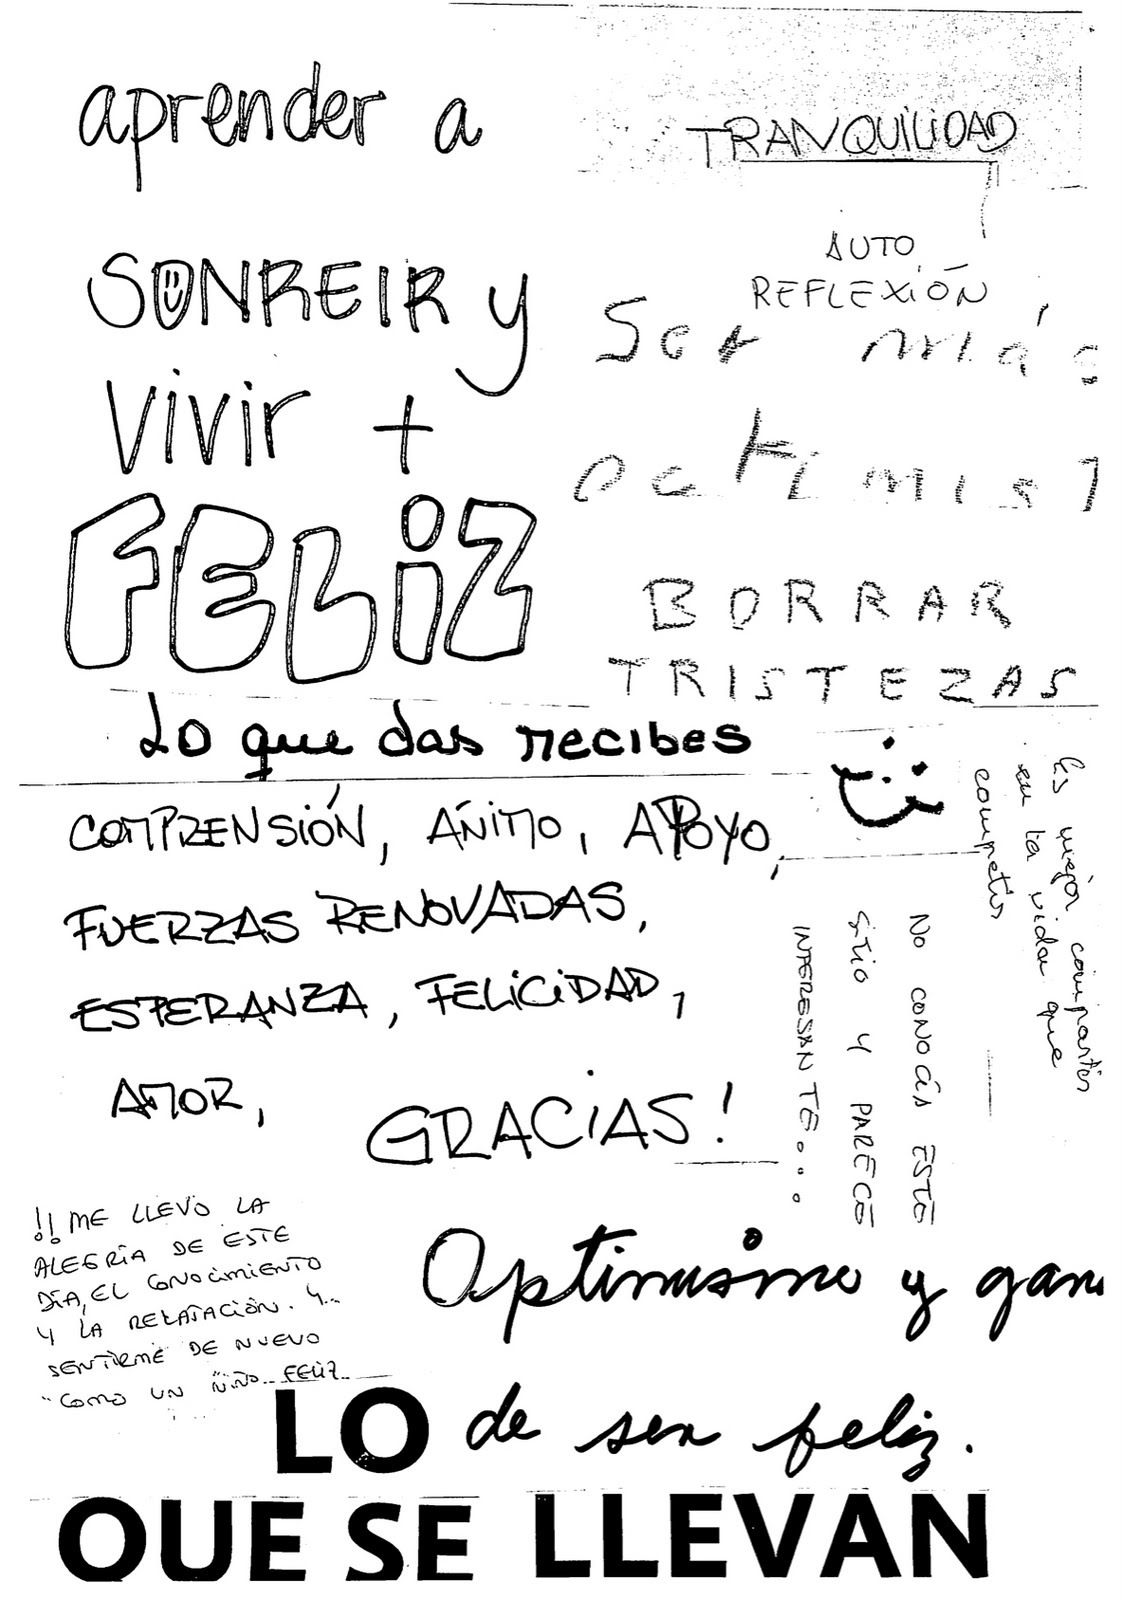 aprender a
SONREIR y
vivir +
FELiZ
TRANQUILiDAD
AUTO
REFLEXIÓN
Ser más
octimist
BORRAR
TRISTEZAS
Lo que das recibes
COMPRENSIÓN, ANIMO, APOYO,
FUERZAS RENOVADAS,
ESPERANZA, FELICIDAD,
AMOR,
GRACIAS!
Es mejor compartir
en la vida que
competir
No CONOCÍA ESTE
SITIO Y PARECE
INTERESANTE...
!! ME LLEVO LA
ALEGRÍA DE ESTE
DÍA, EL CONOCIMIENTO
Y LA RELAJACIÓN. Y...
SENTIRME DE NUEVO
"COMO UN NIÑO FELIZ
Optimismo y gan
de ser feliz.
LO
QUE SE LLEVAN